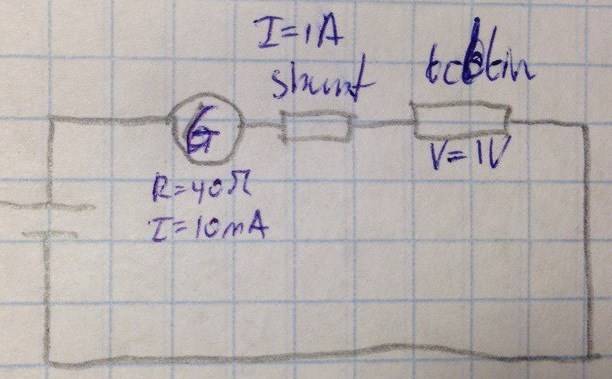 I=1A
shunt
G
R=40Ω
I=10mA
V=1V